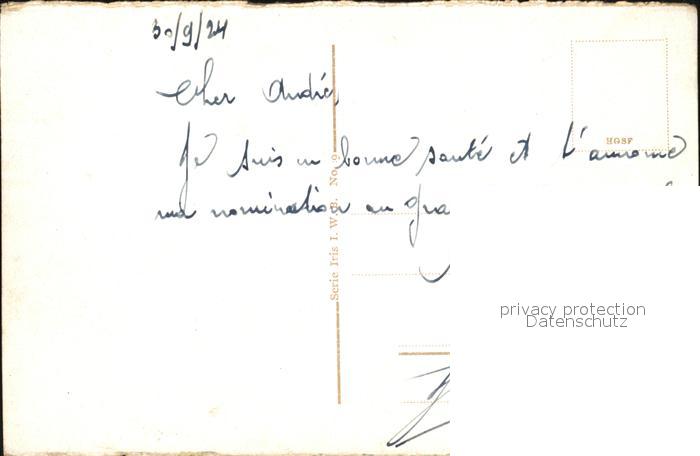 30/9/24
Cher André,
HGSF
Je suis en bonne santé et t'annonce
ma nomination au gra
Serie Iris I. W. B. No. 9
privacy protection
Datenschutz